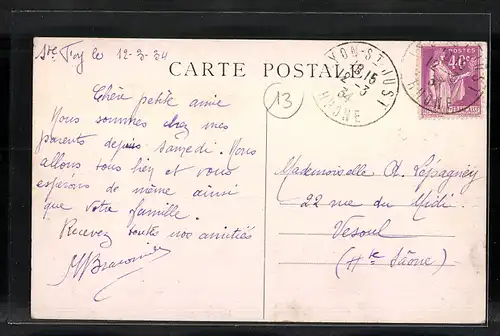 Ste Foy le 12-3-34
CARTE POSTALE
Chère petite amie
Nous sommes chez mes
parents depuis samedi. Nous
allons tous bien et vous
espérons de même ainsi
que votre famille.
Recevez toutes nos amitiés
13
LYON-ST JUST
18 15
12-3
34
RHONE
POSTES
40c
RHONE
Mademoiselle Ch. Lépagney
22 rue du Midi
Vesoul
(Hte Saône)